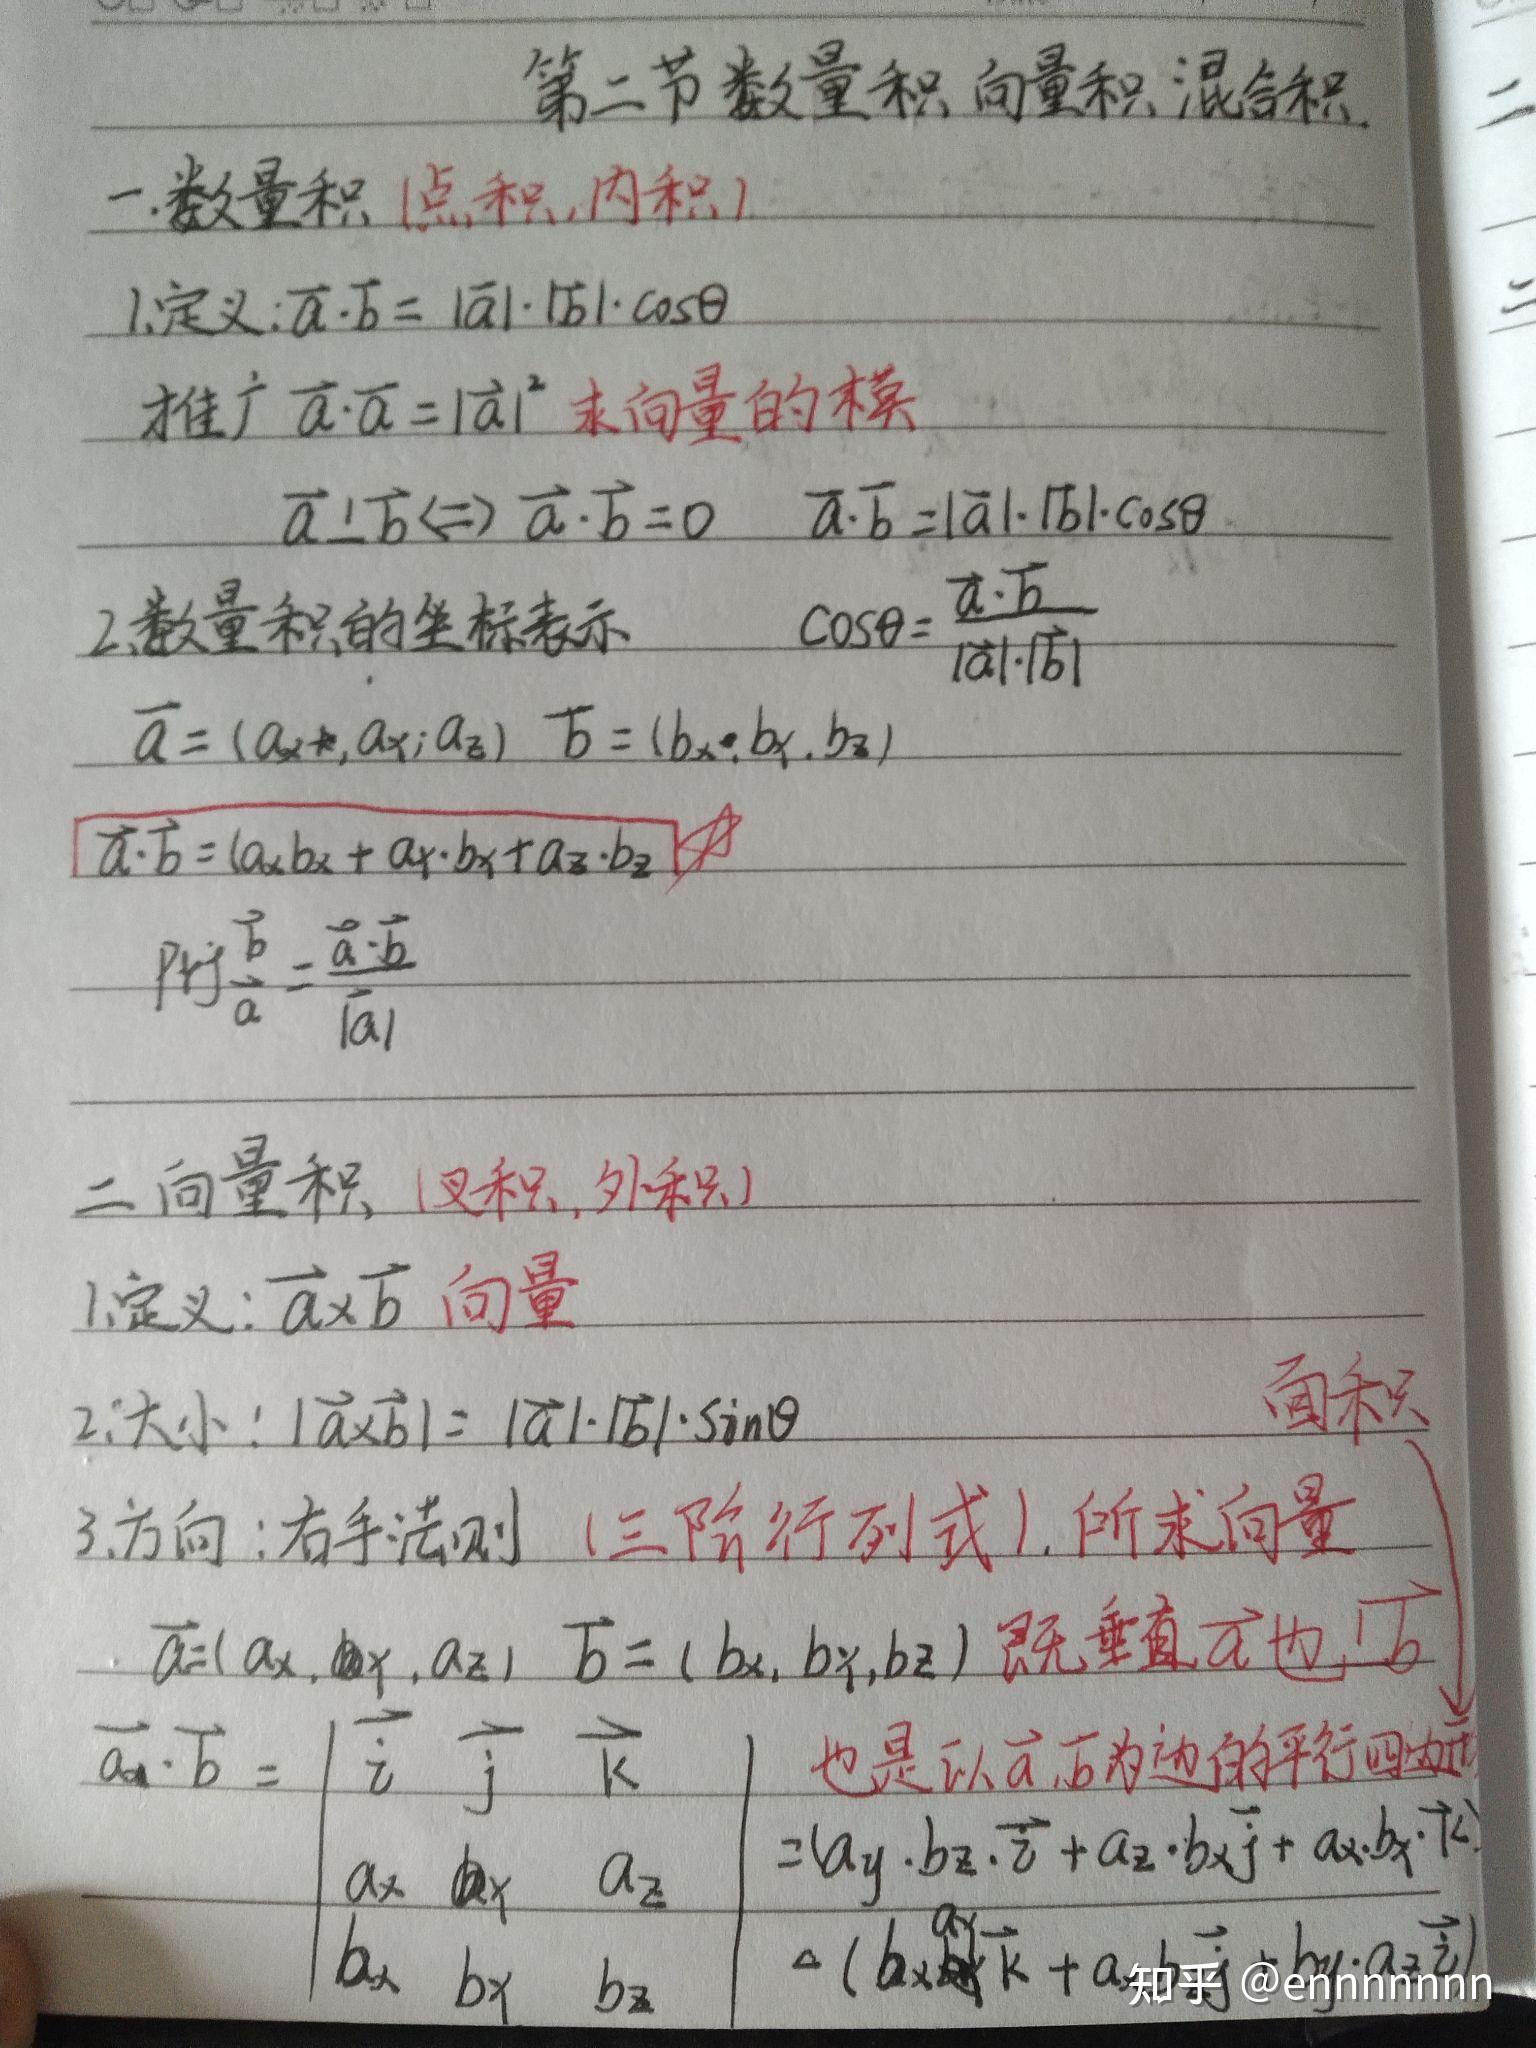 第二节 数量积 向量积 混合积
一.数量积 (点积,内积)
1.定义:a⃗·b⃗=|a⃗|·|b⃗|·cosθ
推广 a⃗·a⃗=|a⃗|² 求向量的模
a⃗⊥b⃗<=>a⃗·b⃗=0 a⃗·b⃗=|a⃗|·|b⃗|·cosθ
2.数量积的坐标表示 cosθ=a⃗·b⃗/|a⃗|·|b⃗|
a⃗=(ax,ay,az) b⃗=(bx,by,bz)
a⃗·b⃗=(axbx+ay·by+az·bz
Prj a⃗ b⃗=a⃗·b⃗/|a⃗|
二 向量积 (叉积,外积)
1.定义:a⃗×b⃗ 向量
2.大小:|a⃗×b⃗|=|a⃗|·|b⃗|·sinθ 面积
3.方向:右手法则 (三阶行列式).所求向量
a⃗=(ax,ay,az) b⃗=(bx,by,bz) 既垂直a⃗也⊥b⃗
a⃗·b⃗= | i⃗ j⃗ k⃗ | 也是以a⃗,b⃗为边的平行四边形
ax ay az =(ay·bz·i⃗+az·bxj⃗+ax·by·k⃗)
bx by bz -(bxayk⃗+axbzj⃗+by·azi⃗)
知乎 @ennnnnnn